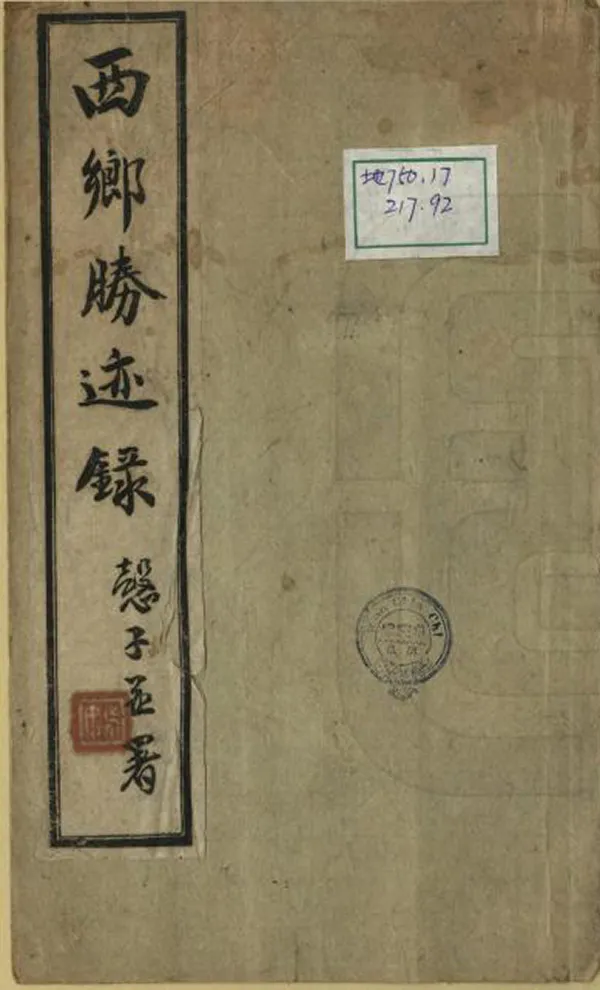 西鄉勝迹錄
憨子並署
地750.17
217.92